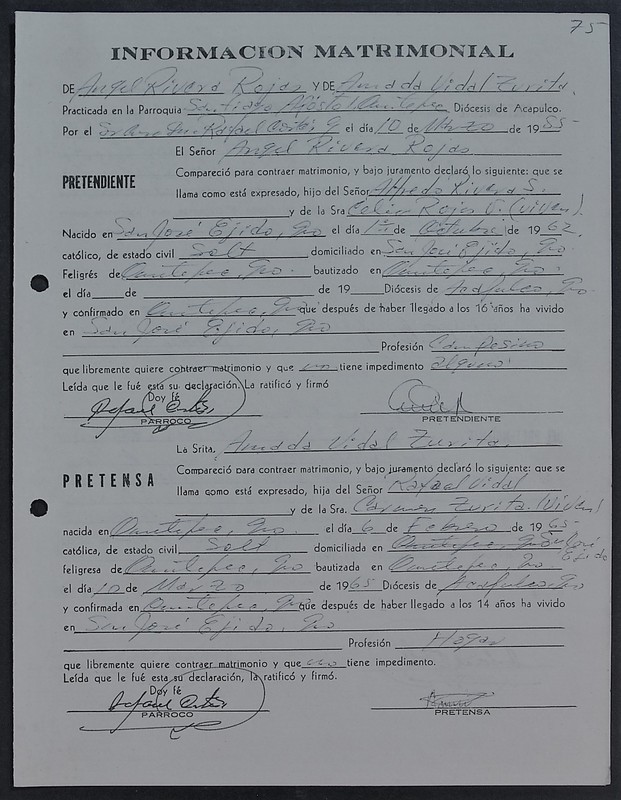 75
INFORMACION MATRIMONIAL
DE Angel Rivera Rojas Y DE Amada Vidal Zurita.
Practicada en la Parroquia Santiago Apóstol Ometepec Diócesis de Acapulco.
Por el Sr. Cura Rafael el día 10 de Marzo de 1985-
El Señor Angel Rivera Rojas
PRETENDIENTE
Compareció para contraer matrimonio, y bajo juramento declaró lo siguiente: que se
llama como está expresado, hijo del Señor Alfredo Rivera S.
y de la Sra Celia Rojas V. (viven)
Nacido en San José Ejido, Gro el día 1º de Octubre de 1962.
católico, de estado civil Solt domiciliado en San José Ejido, Gro.
Feligrés de Ometepec, Gro. bautizado en Ometepec, Gro.
el día de de 19 Diócesis de Acapulco, Gro
y confirmado en Ometepec, Gro que después de haber llegado a los 16 años ha vivido
en San José Ejido, Gro
Profesión Campesino
que libremente quiere contraer matrimonio y que no tiene impedimento alguno
Leída que le fué esta su declaración. La ratificó y firmó
Doy fé
PARROCO
PRETENDIENTE
La Srita, Amada Vidal Zurita.
PRETENSA
Compareció para contraer matrimonio, y bajo juramento declaró lo siguiente: que se
llama como está expresado, hija del Señor Rafael Vidal
y de la Sra. Carmen Zurita. (Viven)
nacida en Ometepec, Gro. el día 6 de Febrero de 1965-
católica, de estado civil Solt domiciliada en San José Ejido
feligresa de Ometepec, Gro bautizada en Ometepec, Gro.
el día 10 de Marzo de 1965 Diócesis de Acapulco, Gro
y confirmada en Ometepec, Gro que después de haber llegado a los 14 años ha vivido
en San José Ejido, Gro
Profesión Hogar
que libremente quiere contraer matrimonio y que no tiene impedimento.
Leída que le fué esta su declaración, la ratificó y firmó.
Doy fé
PARROCO
PRETENSA